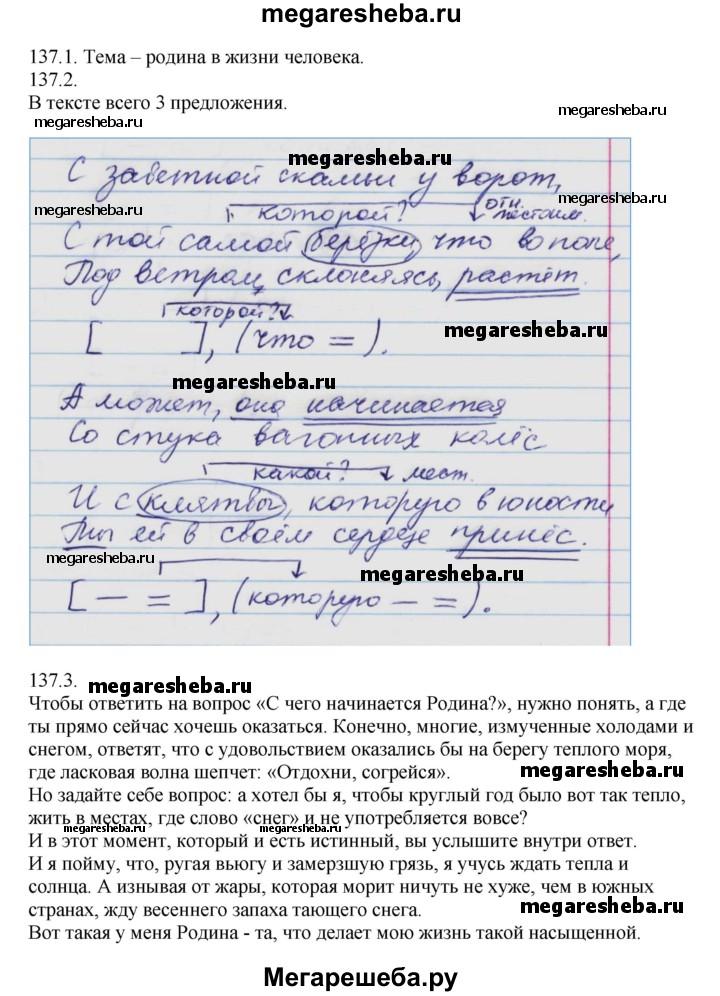 megaresheba.ru
137.1. Тема – родина в жизни человека.
137.2.
В тексте всего 3 предложения.
megaresheba.ru
megaresheba.ru
С заветной скамьи у ворот,
megaresheba.ru
megaresheba.ru
которой?
отн.
местоим.
megaresheba.ru
С той самой берёзки, что во поле,
Под ветром, склоняясь, растёт.
которой?
[ ], (что = ).
megaresheba.ru
megaresheba.ru
А может, она начинается
Со стука вагонных колёс
какой? мест.
И с клятвы, которую в юности
Ты ей в своём сердце принёс.
megaresheba.ru
megaresheba.ru
[ — = ], (которую — = ).
137.3.
megaresheba.ru
Чтобы ответить на вопрос «С чего начинается Родина?», нужно понять, а где
ты прямо сейчас хочешь оказаться. Конечно, многие, измученные холодами и
снегом, ответят, что с удовольствием оказались бы на берегу теплого моря,
где ласковая волна шепчет: «Отдохни, согрейся».
megaresheba.ru
Но задайте себе вопрос: а хотел бы я, чтобы круглый год было вот так тепло,
жить в местах, где слово «снег» и не употребляется вовсе?
megaresheba.ru
megaresheba.ru
И в этот момент, который и есть истинный, вы услышите внутри ответ.
И я пойму, что, ругая вьюгу и замерзшую грязь, я учусь ждать тепла и
солнца. А изнывая от жары, которая морит ничуть не хуже, чем в южных
странах, жду весеннего запаха тающего снега.
megaresheba.ru
Вот такая у меня Родина - та, что делает мою жизнь такой насыщенной.
Мегарешеба.ру